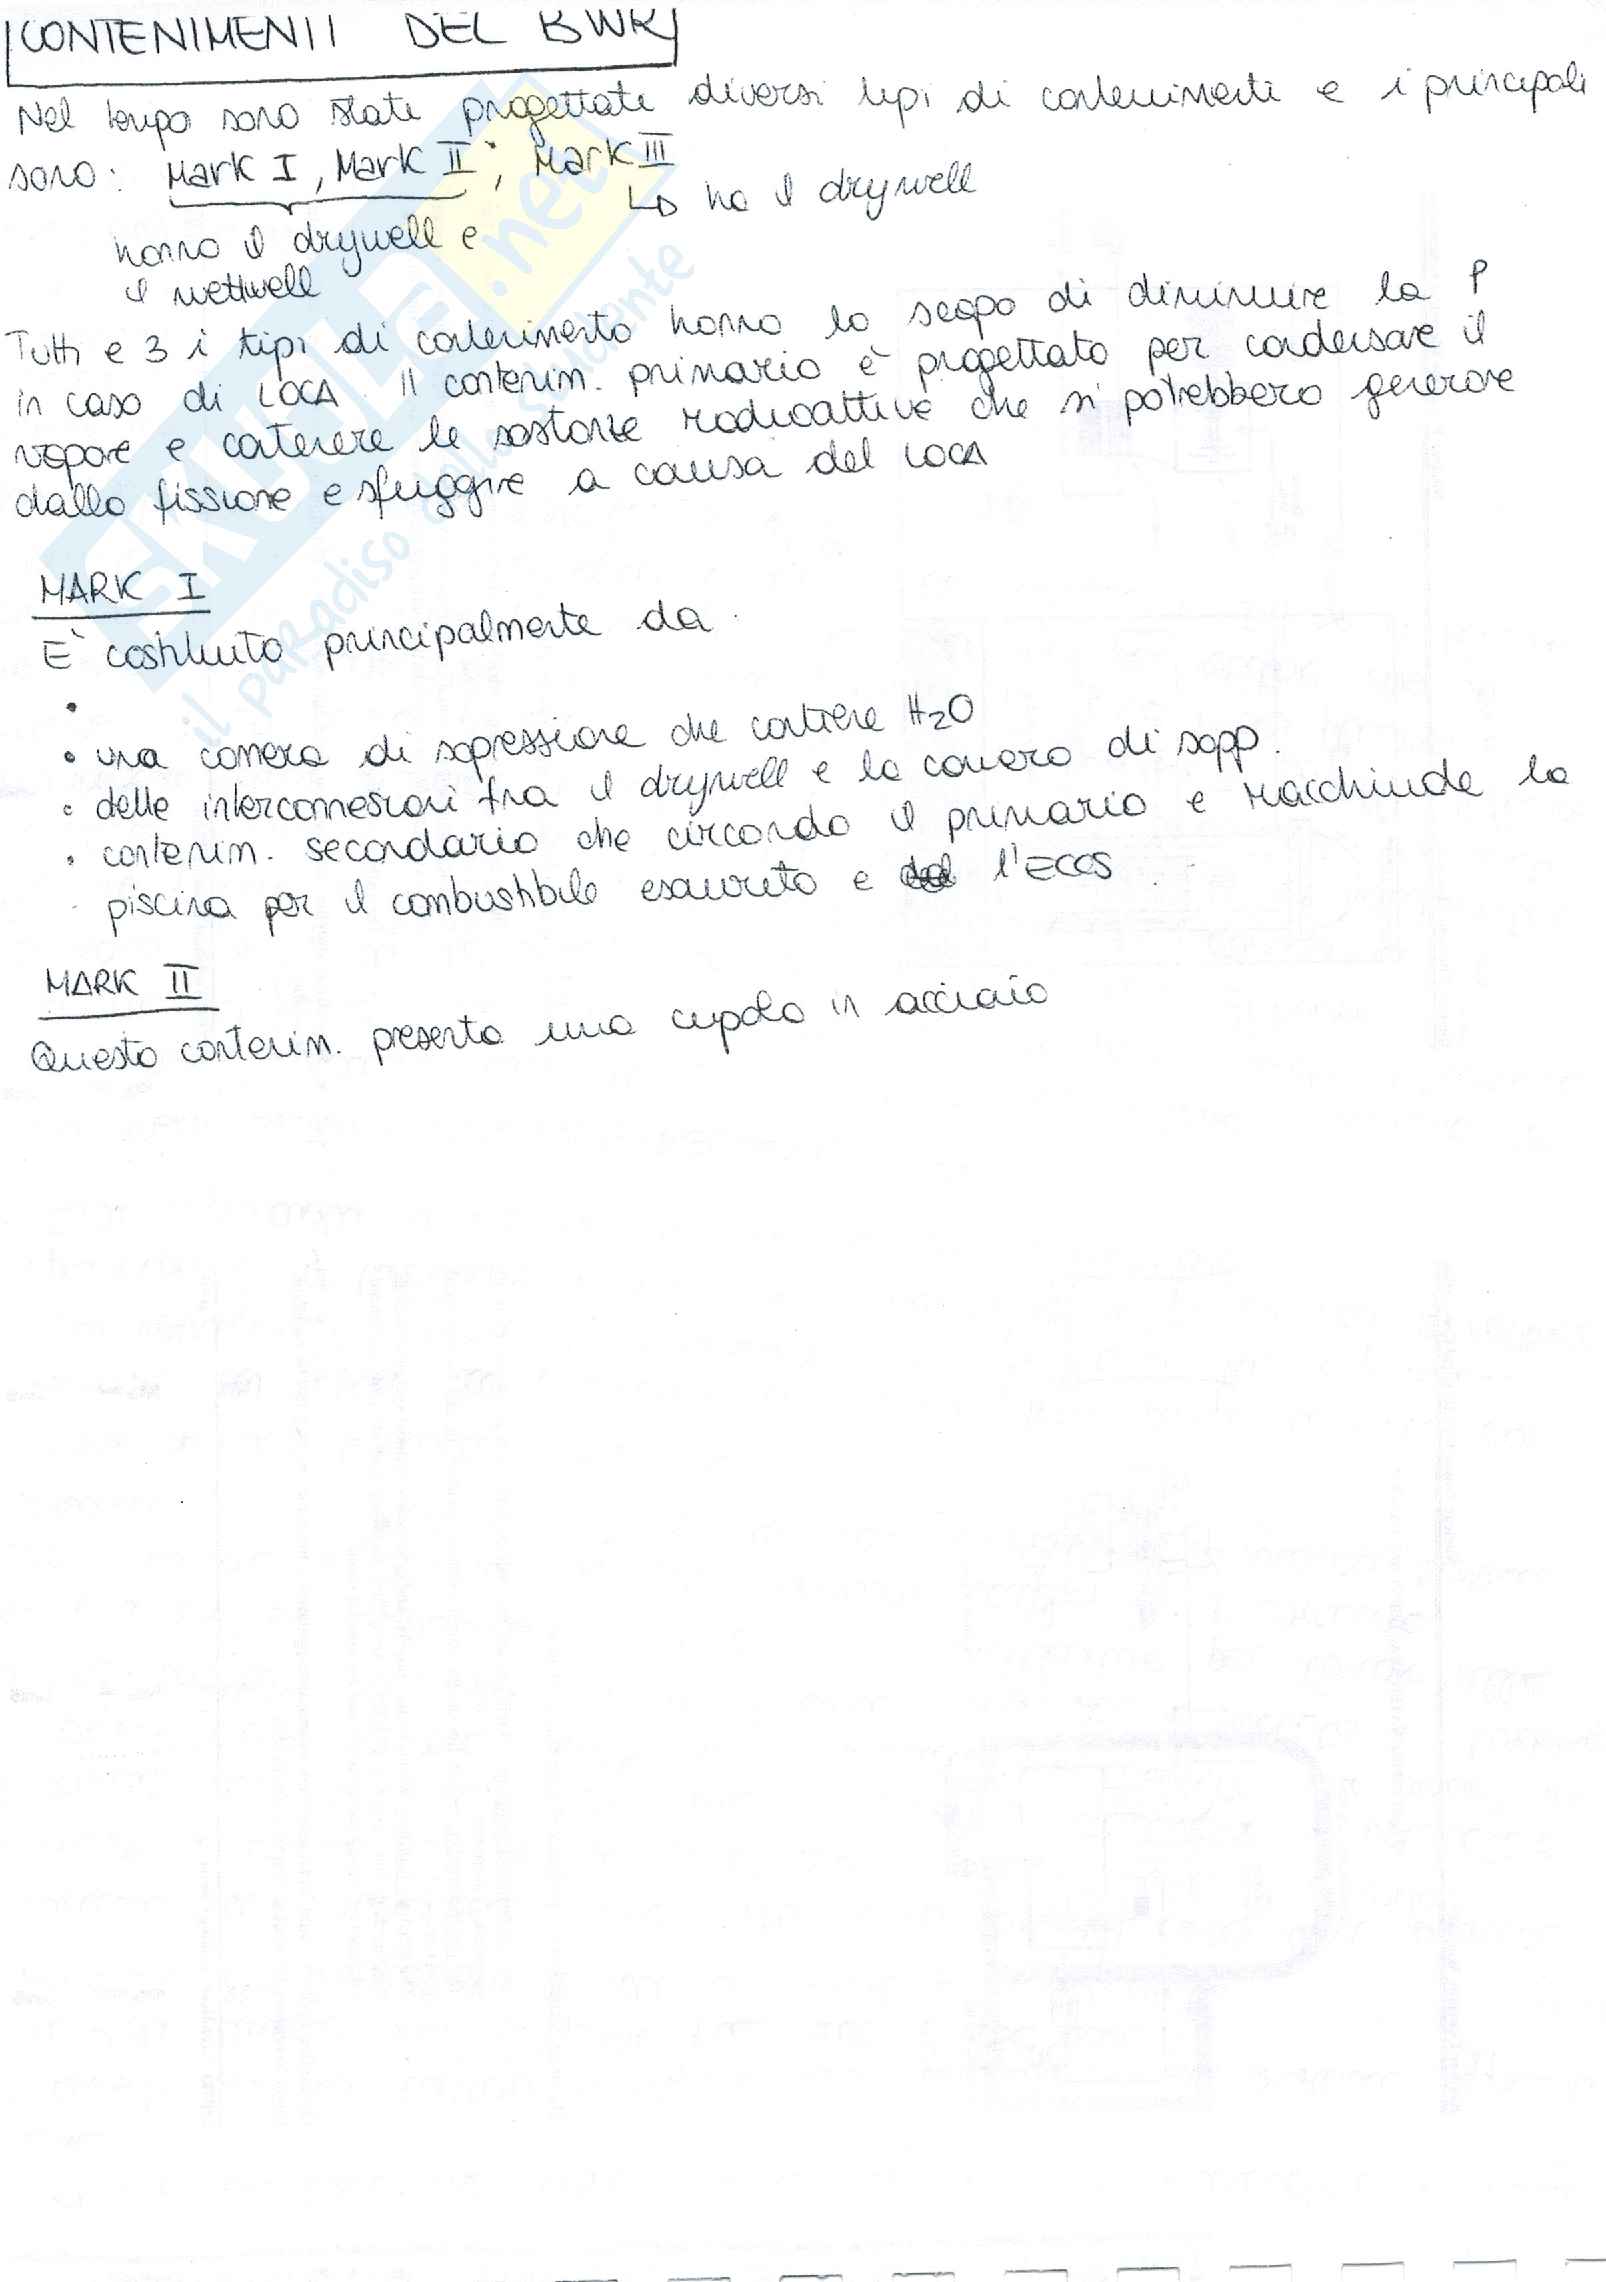 CONTENIMENTI DEL BWR
Nel tempo sono state progettate diversi tipi di contenimenti e i principali
sono: Mark I, Mark II; Mark III
↳ ha il drywell
hanno il drywell e
il wettwell
Tutti e 3 i tipi di contenimento hanno lo scopo di diminuire la P
in caso di LOCA. Il contenim. primario è progettato per condensare il
vapore e contenere le sostanze radioattive che si potrebbero generare
dalla fissione e sfuggire a causa del LOCA
MARK I
È costituito principalmente da.
•
• una camera di sopressione che contiene H₂O
• delle interconnessioni fra il drywell e la camera di sopp.
• contenim. secondario che circonda il primario e racchiude la
piscina per il combustibile esaurito e l'ECCS.
MARK II
Questo contenim. presenta una cupola in acciaio
SKUOLA.net
il paradiso dello studente